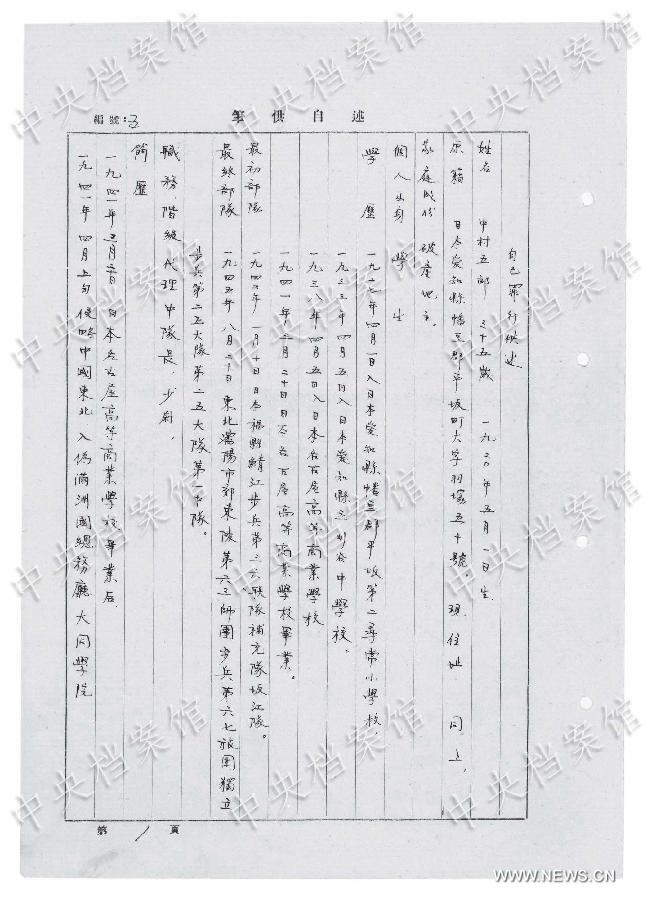 述自供筆
編號:3
自己罪行供述
姓名 中村五郎 三十五歲 一九二〇年五月一日生
原籍 日本愛知縣幡豆郡平坂町大字羽塚五十號。現住址 同上。
家庭成份 破產地主。
個人出身 學生
學歷 一九二七年四月一日入日本愛知縣幡豆郡平坂第二尋常小學校。
一九三三年四月五日入日本愛知縣立刈谷中學校。
一九三八年四月五日入日本名古屋高等商業學校
一九四一年三月二十日日本名古屋高等商業學校畢業。
最初部隊 一九四三年一月十日日本福井縣鯖江步兵第三六聯隊補充隊坂江隊。
最終部隊 一九四五年八月二十日東北瀋陽市郊東陵第六三師團步兵第六七旅團獨立
步兵第二五大隊第二五大隊第一中隊。
職務、階級代理中隊長、少尉、
簡歷
一九四一年三月 日日本名古屋高等商業學校畢業后
一九四一年四月上旬侵略中國東北入偽滿洲國總務廳大同學院
第1頁
中央档案馆
WWW.NEWS.CN